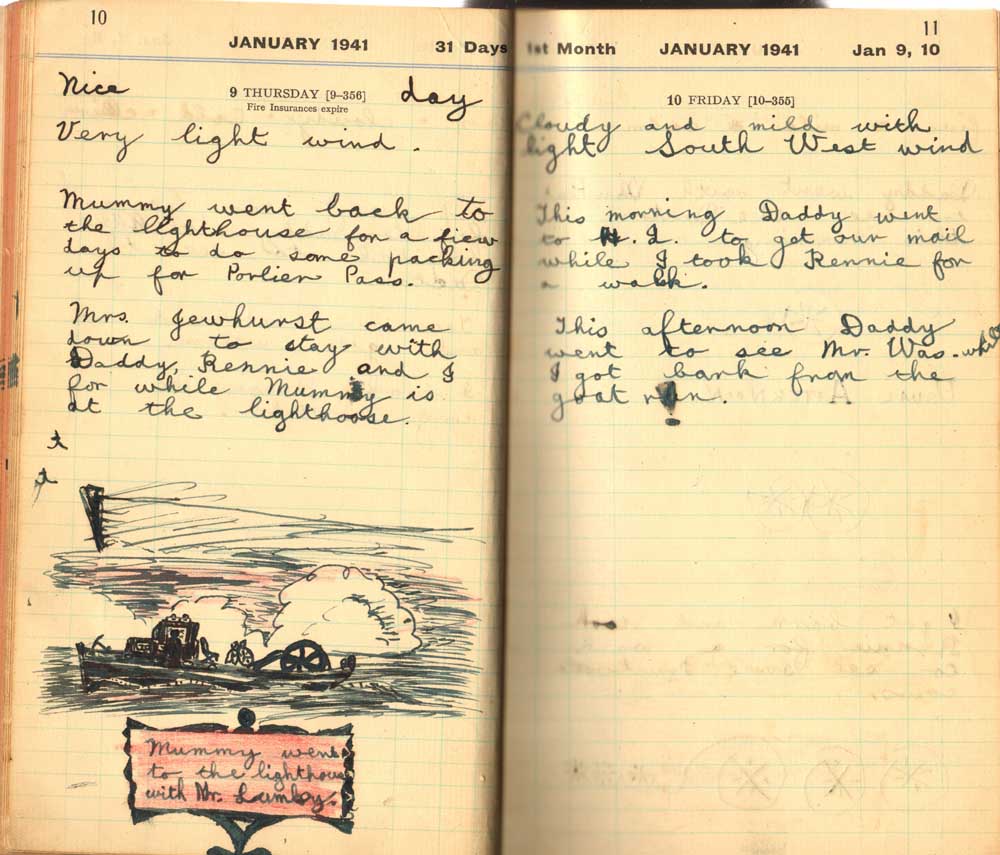 10
JANUARY 1941 31 Days
Nice day
9 THURSDAY [9–356]
Fire Insurances expire
Very light wind.
Mummy went back to
the lighthouse for a fiew
days to do some packing
up for Porlier Pass.
Mrs. Jewhurst came
down to stay with
Daddy, Rennie and I
for while Mummy is
at the lighthoose.
Mummy went
to the lighthouse
with Mr. Lumby.
11
1st Month JANUARY 1941 Jan 9, 10
10 FRIDAY [10–355]
Cloudy and mild with
light South West wind
This morning Daddy went
to to get our mail
while I took Rennie for
a walk.
This afternoon Daddy
went to see Mr. Was. while
I got bark from the
goat run.